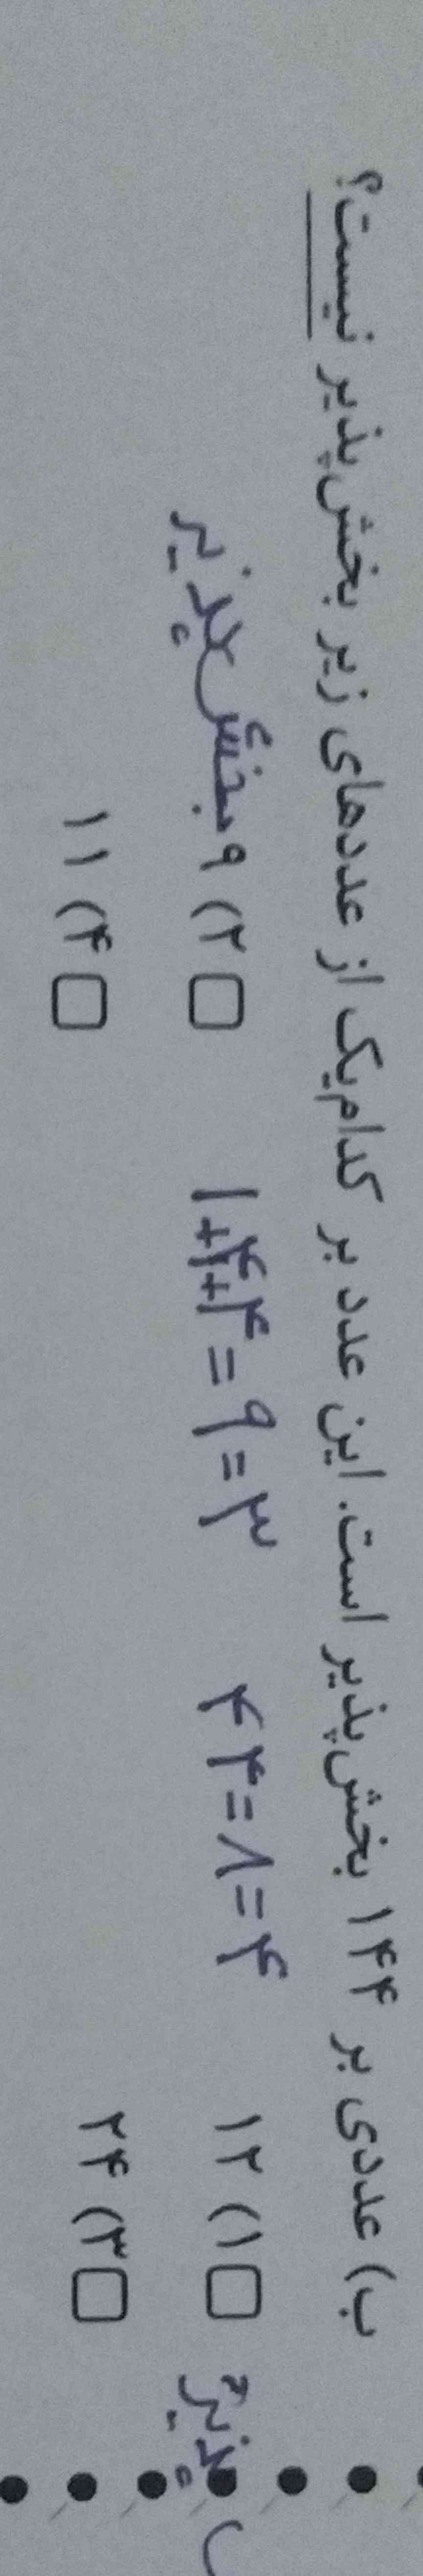 ب) عددی بر ۱۴۴ بخش‌پذیر است. این عدد بر کدام‌یک از عددهای زیر بخش‌پذیر نیست؟
۱) ۱۲ ۴۴=۸=۴ ۱+۴+۴=۹=۳ ۲) ۹ بخش پذیر
۳) ۲۴ ۴) ۱۱